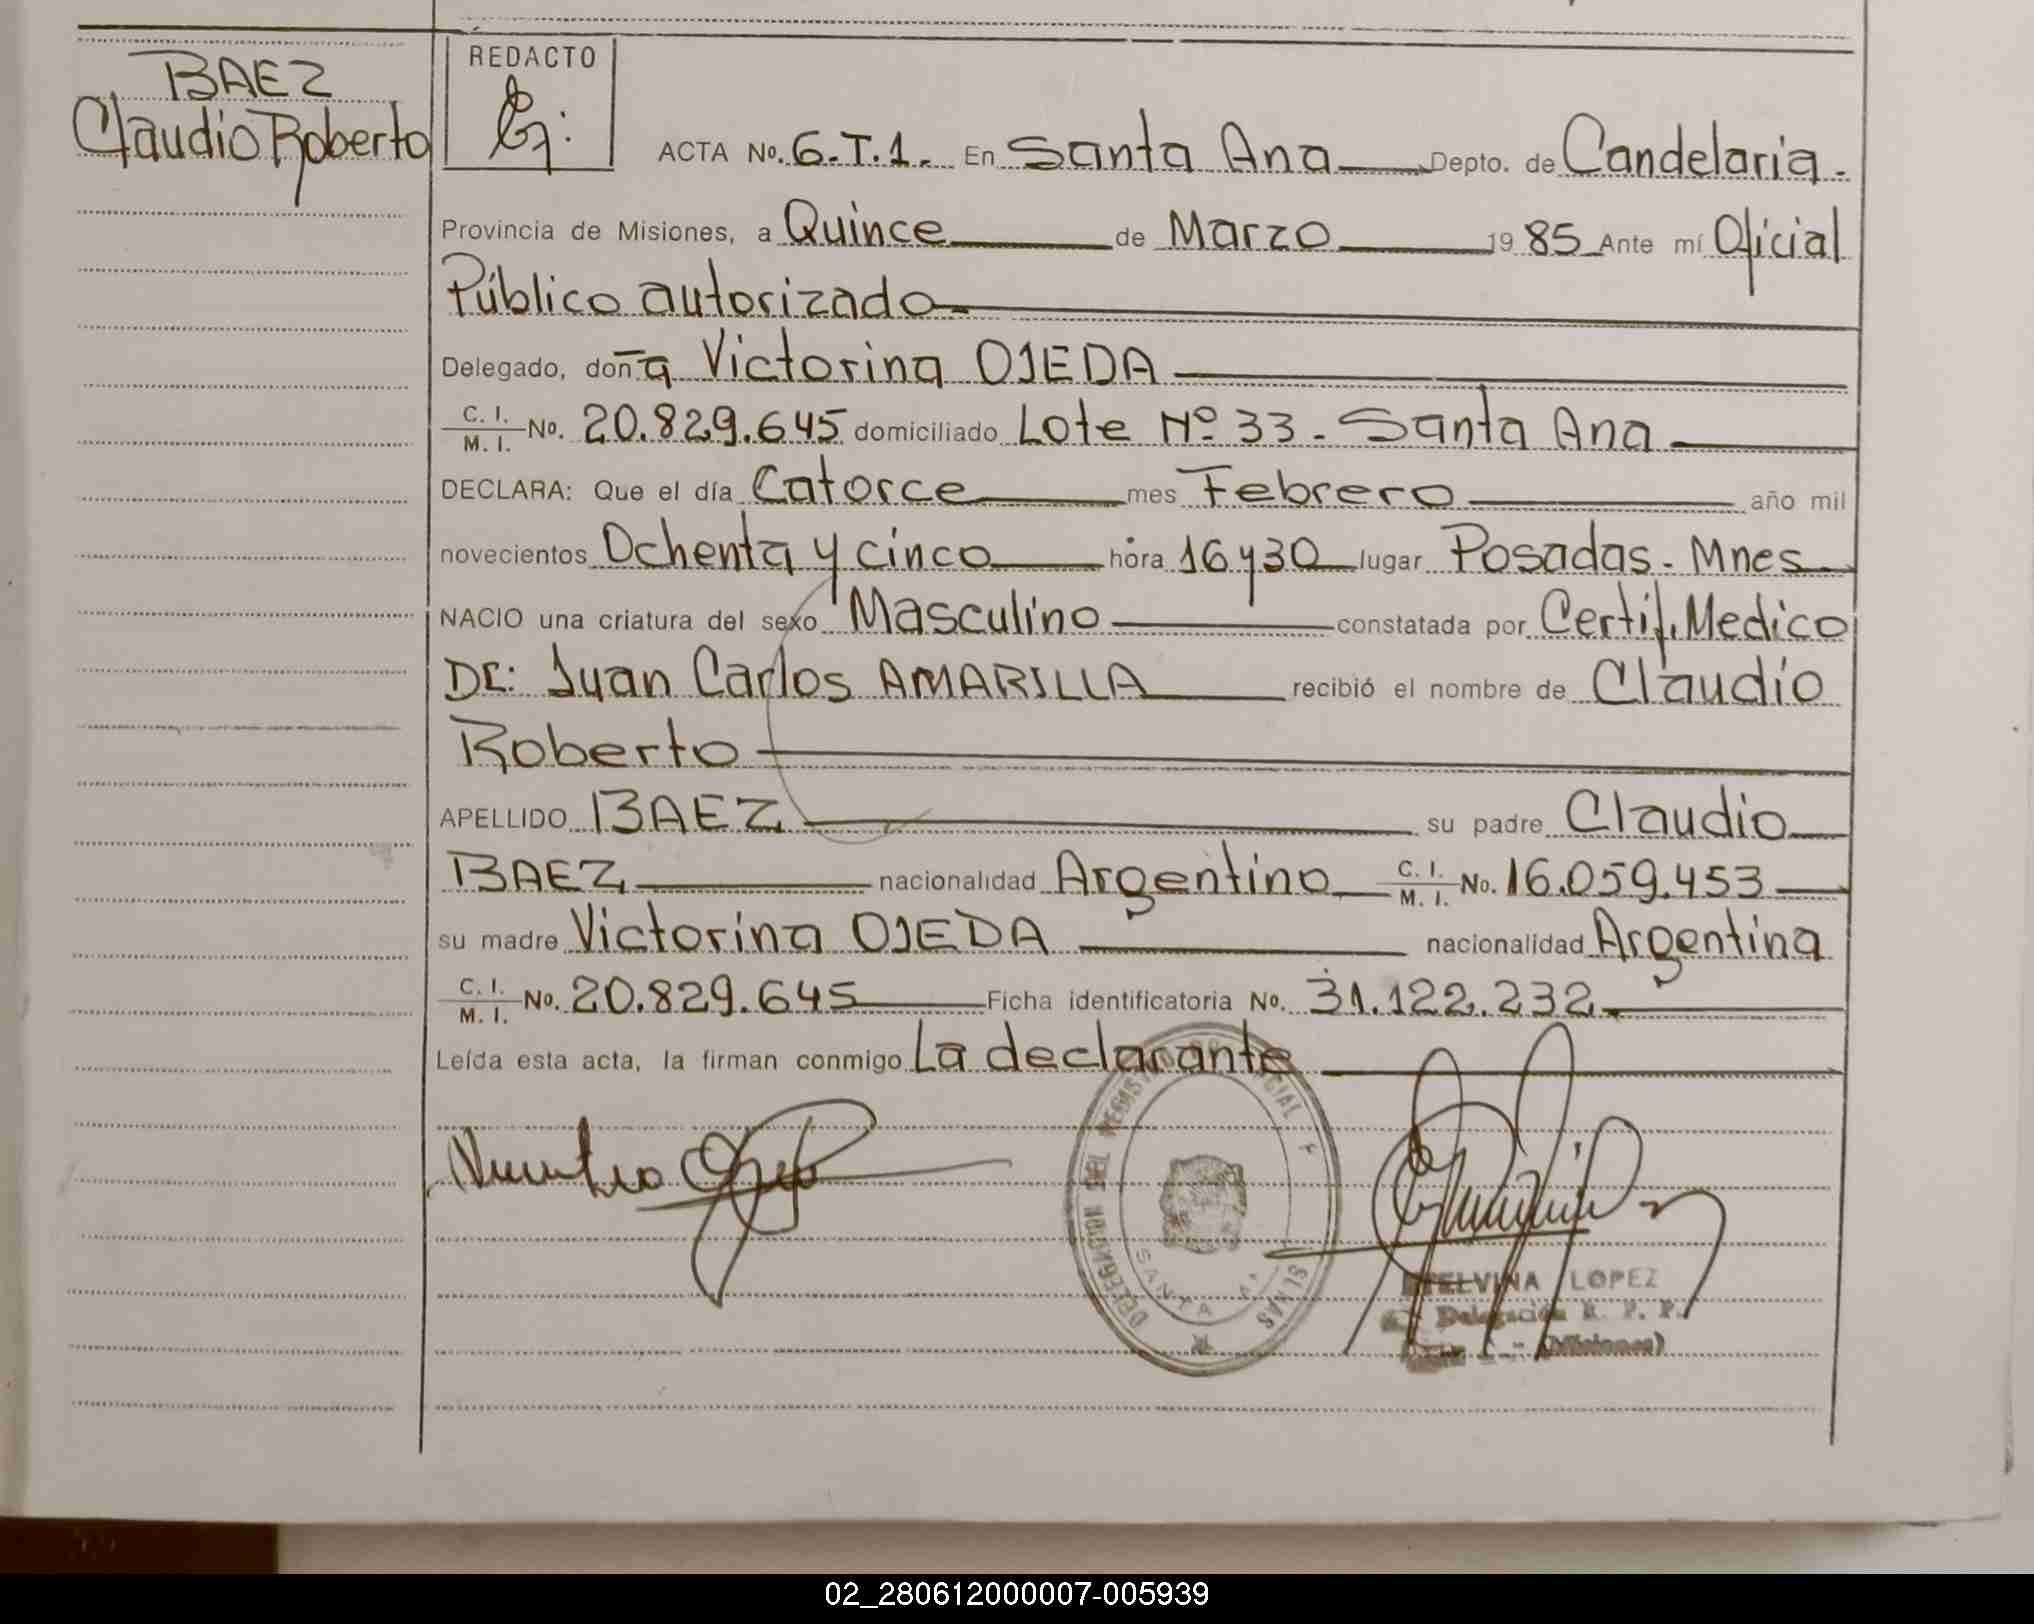 BAEZ
Claudio Roberto
REDACTO
ACTA No. 6.T.1. En Santa Ana Depto. de Candelaria.
Provincia de Misiones, a Quince de Marzo 1985 Ante mí Oficial
Público autorizado
Delegado, doña Victorina OJEDA
C. I. / M. I. No. 20.829.645 domiciliado Lote Nº 33 - Santa Ana
DECLARA: Que el día Catorce mes Febrero año mil
novecientos Ochenta y cinco hora 16 y 30 lugar Posadas - Mnes
NACIO una criatura del sexo Masculino constatada por Certif. Medico
Dr: Juan Carlos AMARILLA recibió el nombre de Claudio
Roberto
APELLIDO BAEZ su padre Claudio
BAEZ nacionalidad Argentino C. I. / M. I. No. 16.059.453
su madre Victorina OJEDA nacionalidad Argentina
C. I. / M. I. No. 20.829.645 Ficha identificatoria No. 31.122.232
Leída esta acta, la firman conmigo La declarante
DELEGACION DEL
SANTA
ETELVINA LOPEZ
Delegación R. P. P.
(Misiones)
02_280612000007-005939